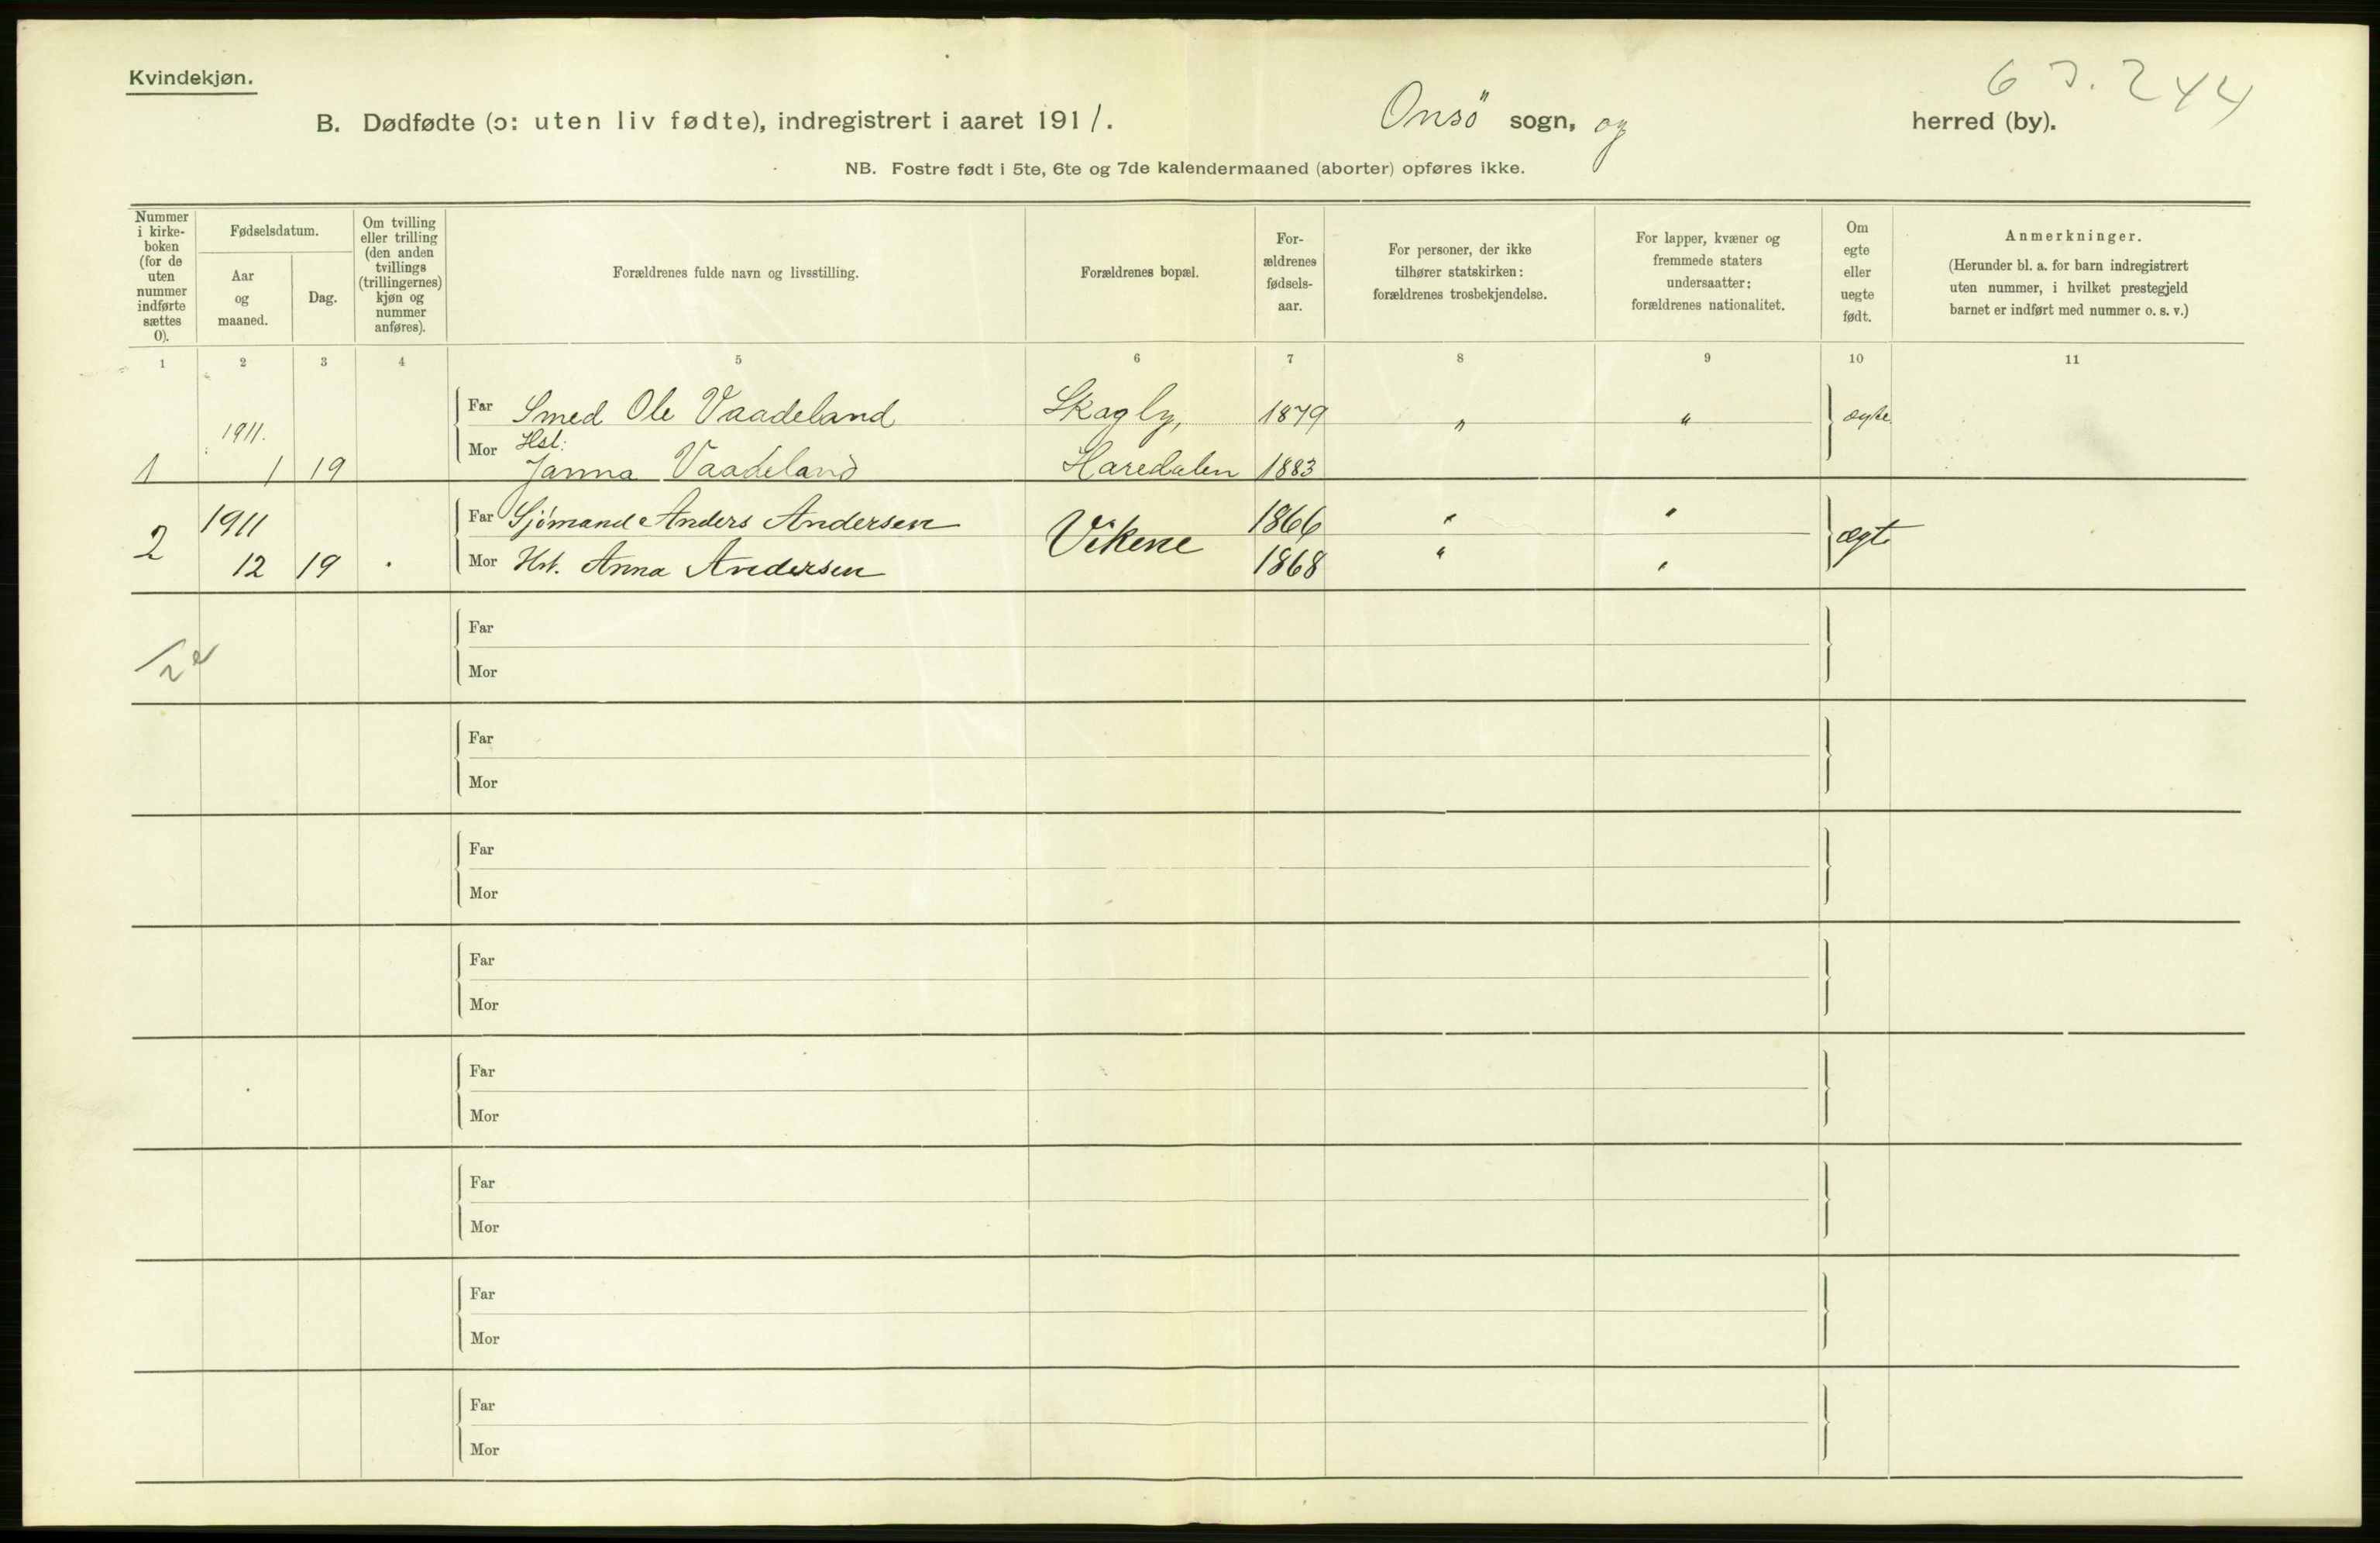 Kvindekjøn.
6 J. 244
B. Dødfødte (ɔ: uten liv fødte), indregistrert i aaret 1911. Onsö sogn, og herred (by).
NB. Fostre født i 5te, 6te og 7de kalendermaaned (aborter) opføres ikke.
Nummer i kirke- boken (for de uten nummer indførte sættes 0).
Fødselsdatum.
Aar og maaned.
Dag.
Om tvilling eller trilling (den anden tvillings (trillingernes) kjøn og nummer anføres).
Forældrenes fulde navn og livsstilling.
Forældrenes bopæl.
For- ældrenes fødsels- aar.
For personer, der ikke tilhører statskirken: forældrenes trosbekjendelse.
For lapper, kvæner og fremmede staters undersaatter: forældrenes nationalitet.
Om egte eller uegte født.
Anmerkninger.
(Herunder bl. a. for barn indregistrert uten nummer, i hvilket prestegjeld barnet er indført med nummer o. s. v.)
1 2 3 4 5 6 7 8 9 10 11
Far Smed Ole Vaadeland Skagly, 1879 " " ægte
1911.
Mor Hst:
1 1 19 Janna Vaadeland Haredalen 1883
1911 Far Sjömand Anders Andersen Vikene 1866 " "
2 ægte
12 19 Mor Hst. Anna Andersen 1868 " "
Far
Mor
Far
Mor
Far
Mor
Far
Mor
Far
Mor
Far
Mor
Far
Mor
Far
Mor